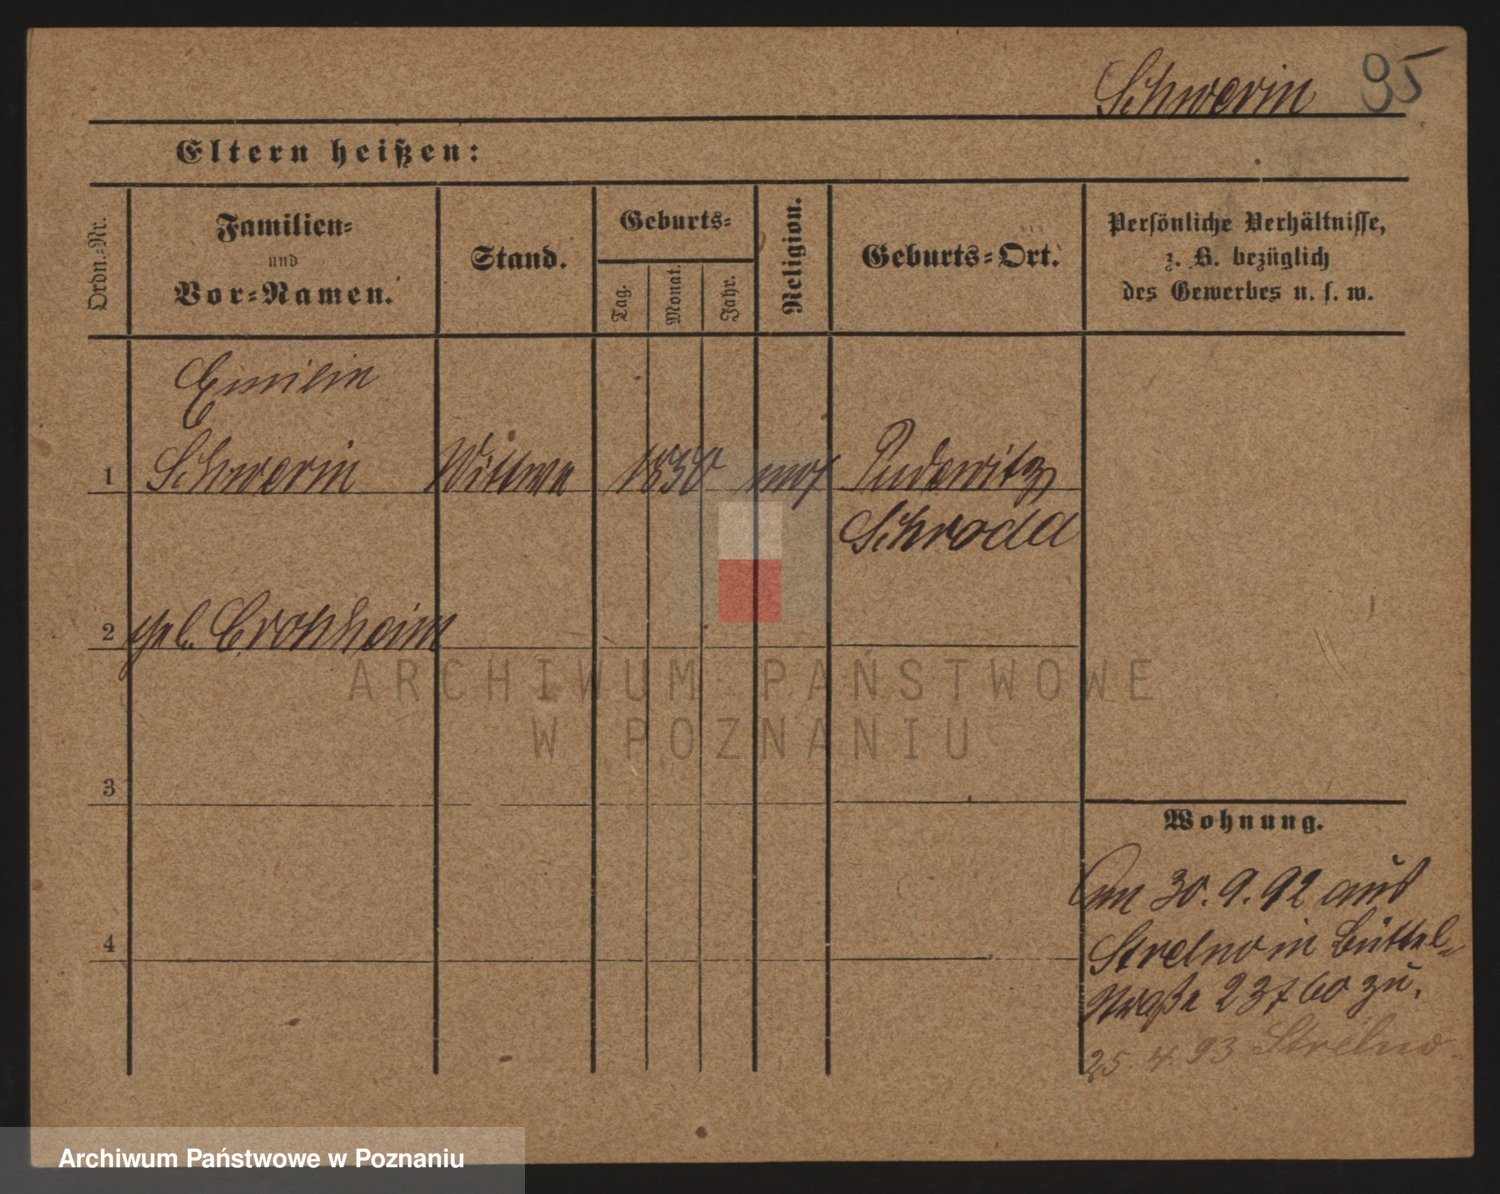 Schwerin 95
Eltern heißen:
Ordn.-Nr.
Familien-
und
Vor-Namen.
Stand.
Geburts-
Tag.
Monat.
Jahr.
Religion.
Geburts-Ort.
Persönliche Verhältnisse,
z. B. bezüglich
des Gewerbes u. s. w.
Emilie
1 Schwerin Wittwe 1830 mos Pudewitz
Schroda
2 geb.
3
4
Wohnung.
Am 30. 9. 92 aus
Strelno in Büttel-
straße 23 zu.
25. 4. 93 Strelno
ARCHIWUM PAŃSTWOWE
W POZNANIU
Archiwum Państwowe w Poznaniu